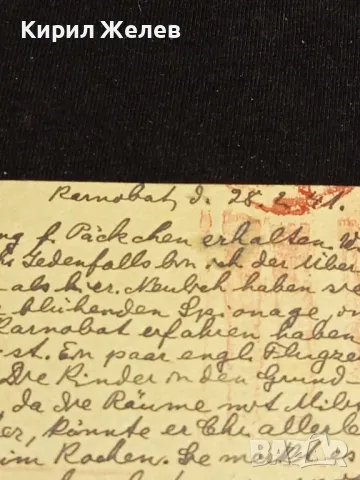 Кирил Желев
Karnobat, d. 28. 2. 41.
ng f. Päckchen erhalten. W
Jedenfalls bin ich der Über
als hier. Neulich haben sie
blühenden Spionage, in
Karnobat erfahren haben
st. Ein paar engl. Flugze
Die Kinder in den Grund-
da die Räume mit Mili
er, könnte er Ehr allerle
im Kochen. Sie macht es
bazar.bg